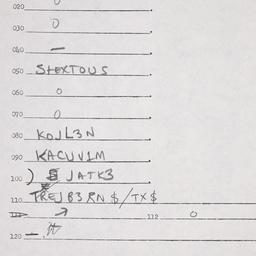 020
030 0
040 —
050 STEXTOUS
060 0
070 0
080 KOJL3N
090 KACUV1M
100 ) JATK3
110 TREJB3RN$/TX$
112 0
120 —